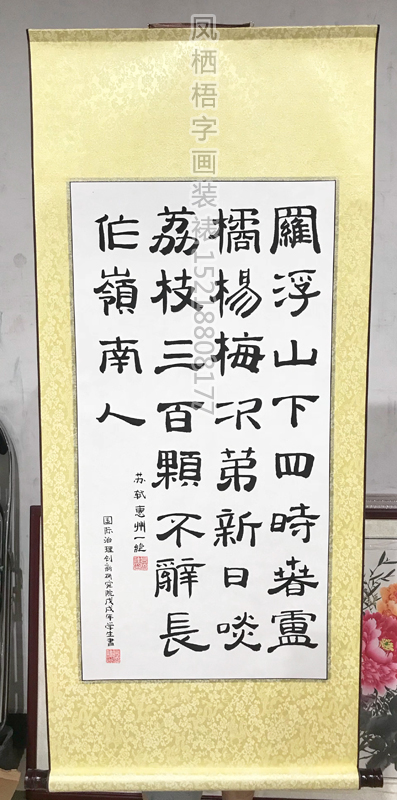 羅浮山下四時春盧
橘楊梅次第新日啖
荔枝三百顆不辭長
作嶺南人
苏轼惠州一绝
国际治理创新研究院戊戌年学生書
凤栖梧字画装裱 15218808177